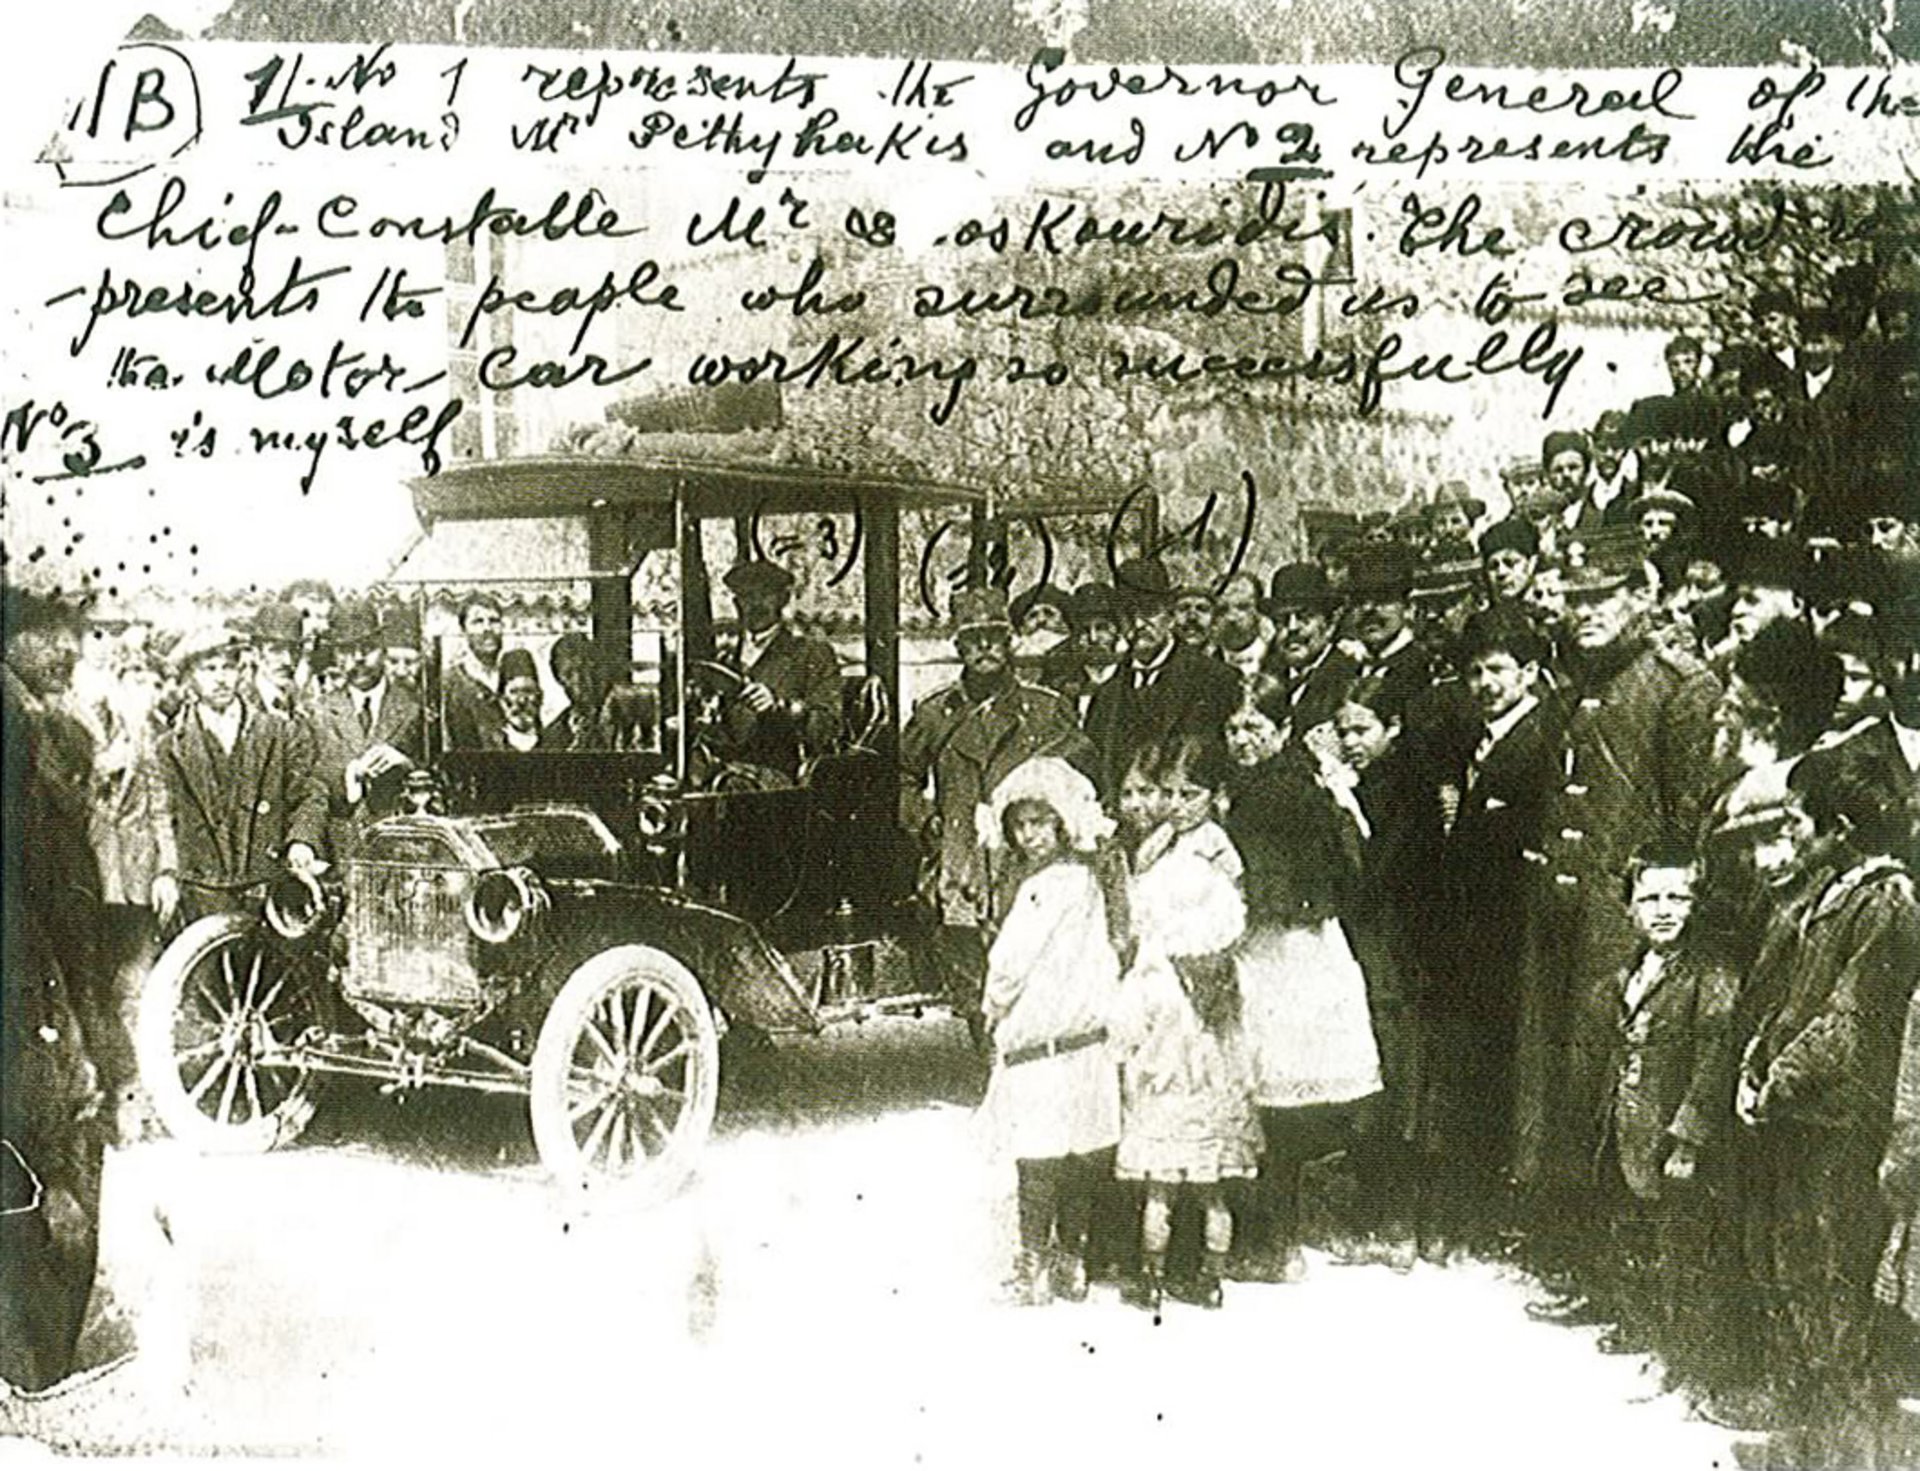 1B 1/. No 1 represents the Governor General of the
Island Mr Pethyhakis and No 2 represents the
Chief-Constable Mr oskouridis. The crowd re
-presents the people who surrounded us to see
the Motor-Car working so successfully.
No 3 is myself
(-3) (1)